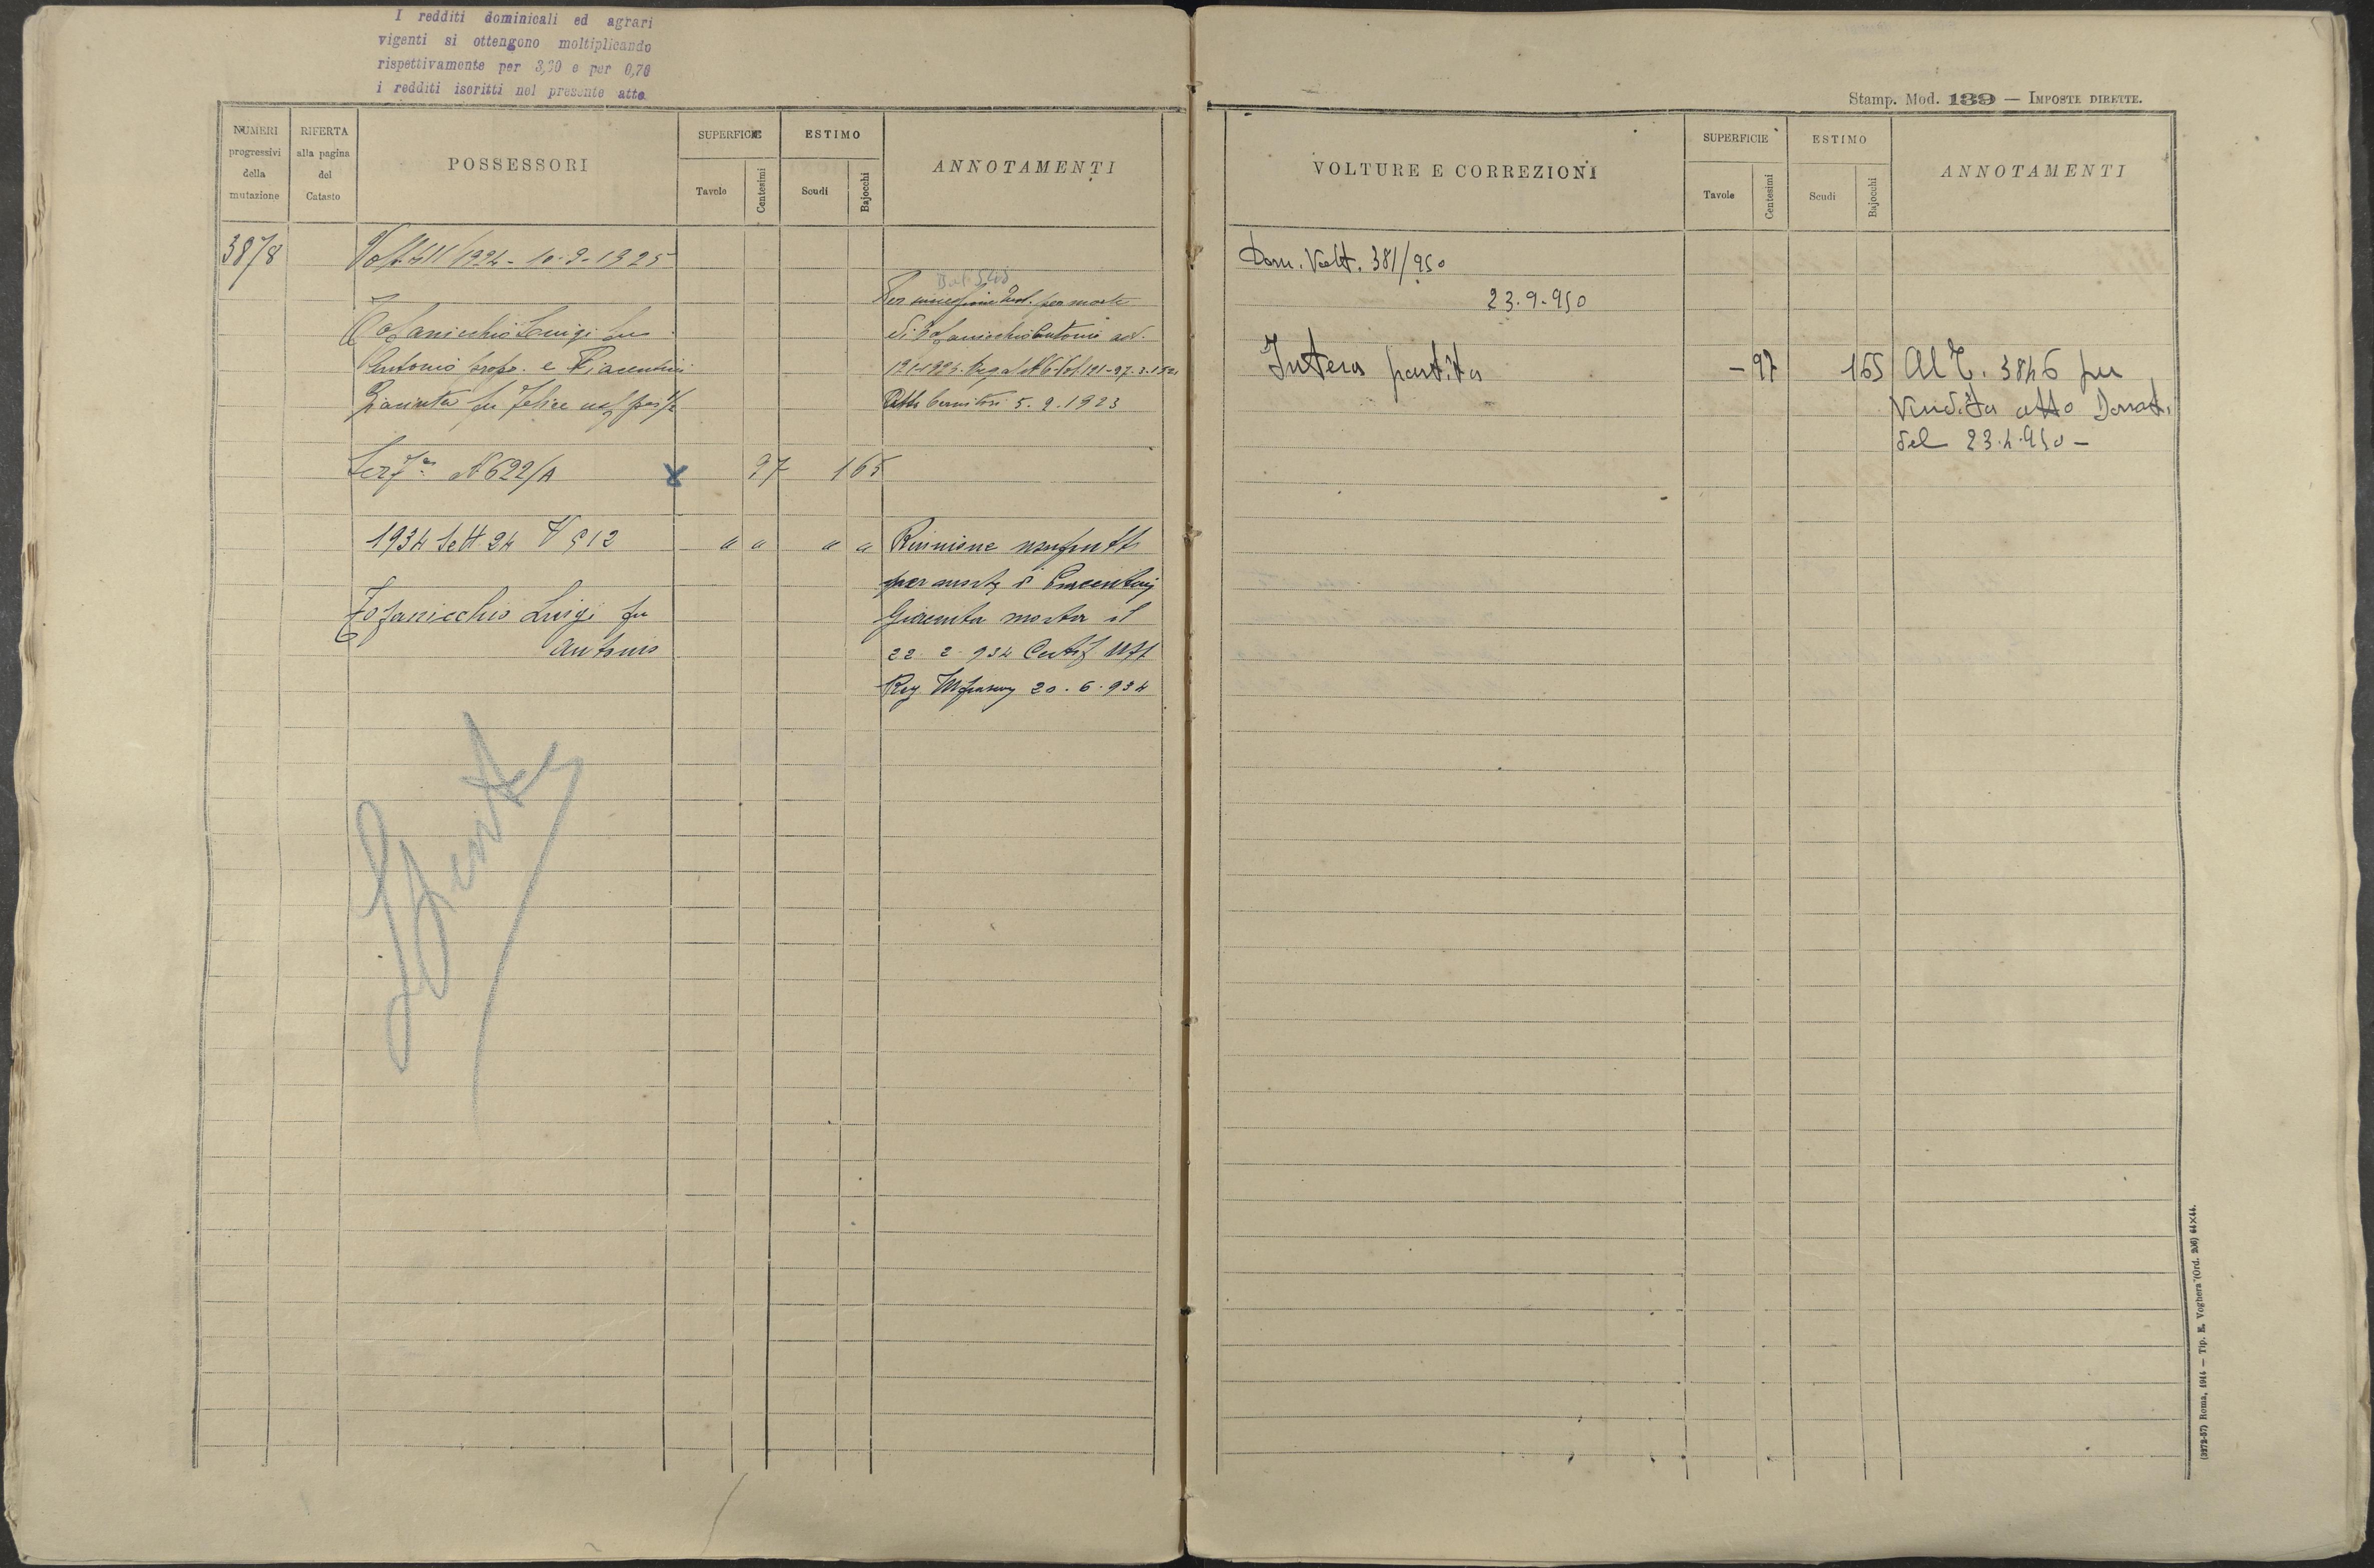 I redditi dominicali ed agrari
vigenti si ottengono moltiplicando
rispettivamente per 3,30 e per 0,70
i redditi iscritti nel presente atto
NUMERI progressivi della mutazione
RIFERTA alla pagina del Catasto
POSSESSORI
SUPERFICIE
Tavole
Centesimi
ESTIMO
Scudi
Bajocchi
ANNOTAMENTI
3878
Volt 411/1924 - 10.9.1925
Per successione Test. per morte
Tofanicchio Luigi fu
di Tofanicchio Antonio
Antonio propr. e Piacentini
Giacinta fu Felice usf per 1/2
Atti 5.2.1923
Serz N 622/A
97 165
1934 Sett 24 V 512
" " " " Riunione usufrutto
per morte di Piacentini
Tofanicchio Luigi fu
Giacinta morta il
Antonio
22.2.934 Certif
Reg 20.6.934
Stamp. Mod. 139 — IMPOSTE DIRETTE.
VOLTURE E CORREZIONI
SUPERFICIE
Tavole
Centesimi
ESTIMO
Scudi
Bajocchi
ANNOTAMENTI
Dom. Volt. 381/950
23.9.950
Intera partita
- 97 165 Al T. 3846 per
Vendita atto Donati
del 23.4.950 -
(3272-57) Roma, 1914 — Tip. E. Voghera (Ord. 206) 64×44.